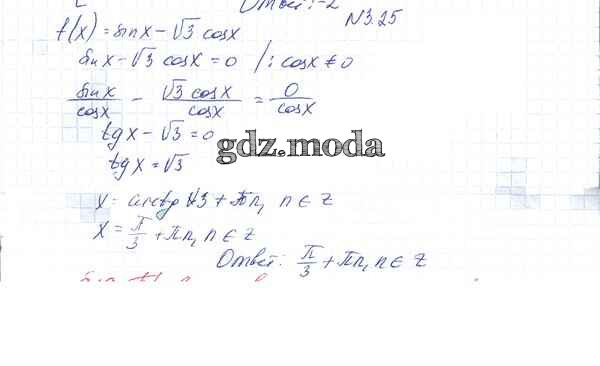 Ответ: -2
N3.25
f(x) = sinx - √3 cosx
sinx - √3 cosx = 0 /: cosx ≠ 0
sinx/cosx - √3 cosx/cosx = 0/cosx
tgx - √3 = 0
gdz.moda
tgx = √3
x = arctg √3 + πn, n ∈ Z
x = π/3 + πn, n ∈ Z
Ответ: π/3 + πn, n ∈ Z